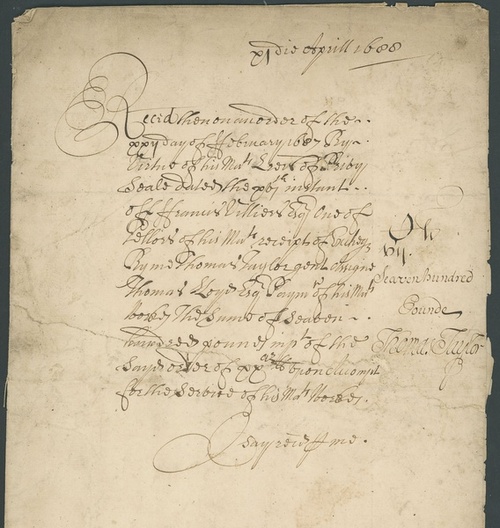 xj die Aprill 1688
Recd then on an order of the
xxv day of February 1687 By
Virtue of his Mats Lres of Privy
Seale dated the xvjth instant
of ffrancis Villiers Esq One of
Tellors of his Mats receipt of Excheqr
By me Thomas Taylor gent Assigne
Thomas Loyd Esq Paymr of his Mats
Workes The Sume of Seaven
hundred pounds in pt of the
Sayd order of upon Accompt
for the Service of his Mats Workes
Seaven hundred
Pounds
Thomas Taylor
I say recd p me